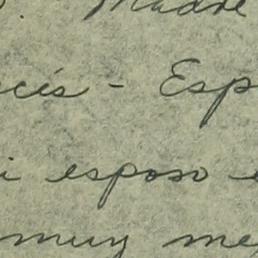 Madre
cís - Esp
i esposo e
muy me